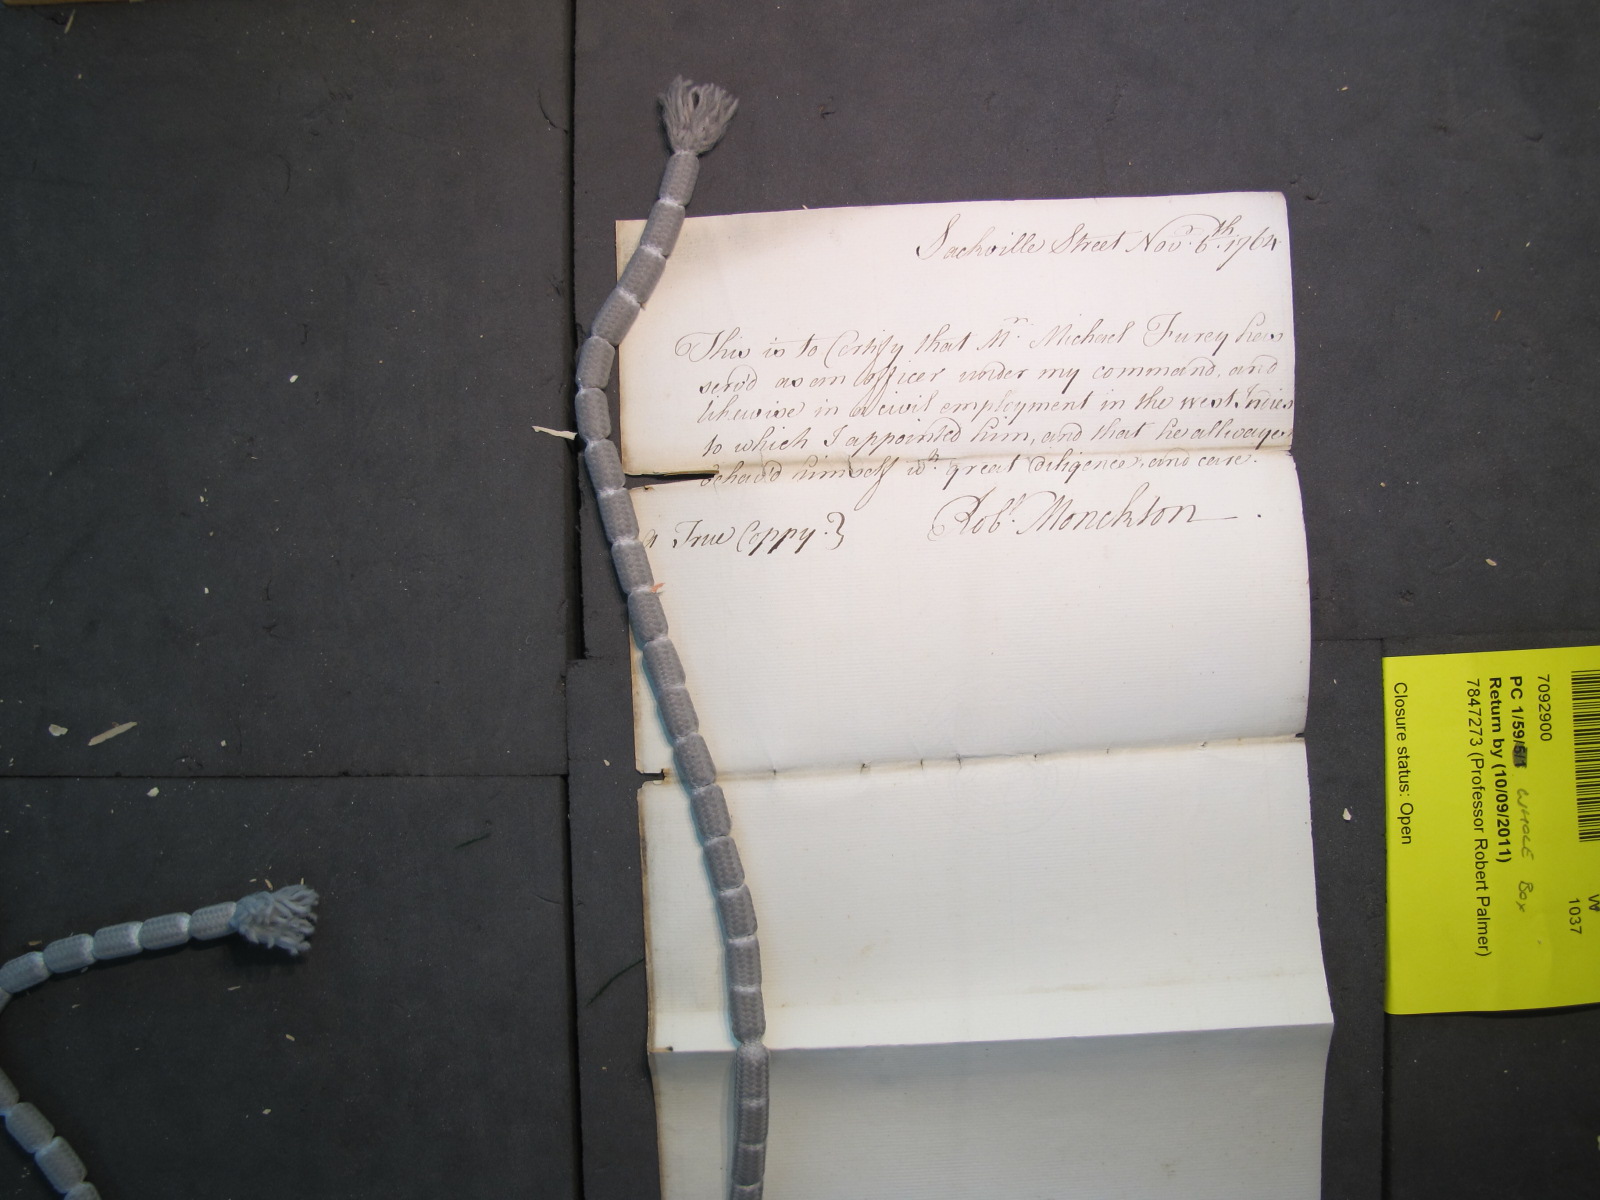 Sackville Street Novr. 6th. 1764
This is to Certify that Mr. Michael Furey has
serv'd as an officer under my command, and
likewise in a civil employment in the west Indies
to which I appointed him, and that he allwayes
behav'd himself wth. great diligence, and care.
Robt. Monckton
a True Coppy.}
W
1037
7092900
PC 1/59/5/1 WHOLE BOX
Return by (10/09/2011)
7847273 (Professor Robert Palmer)
Closure status: Open